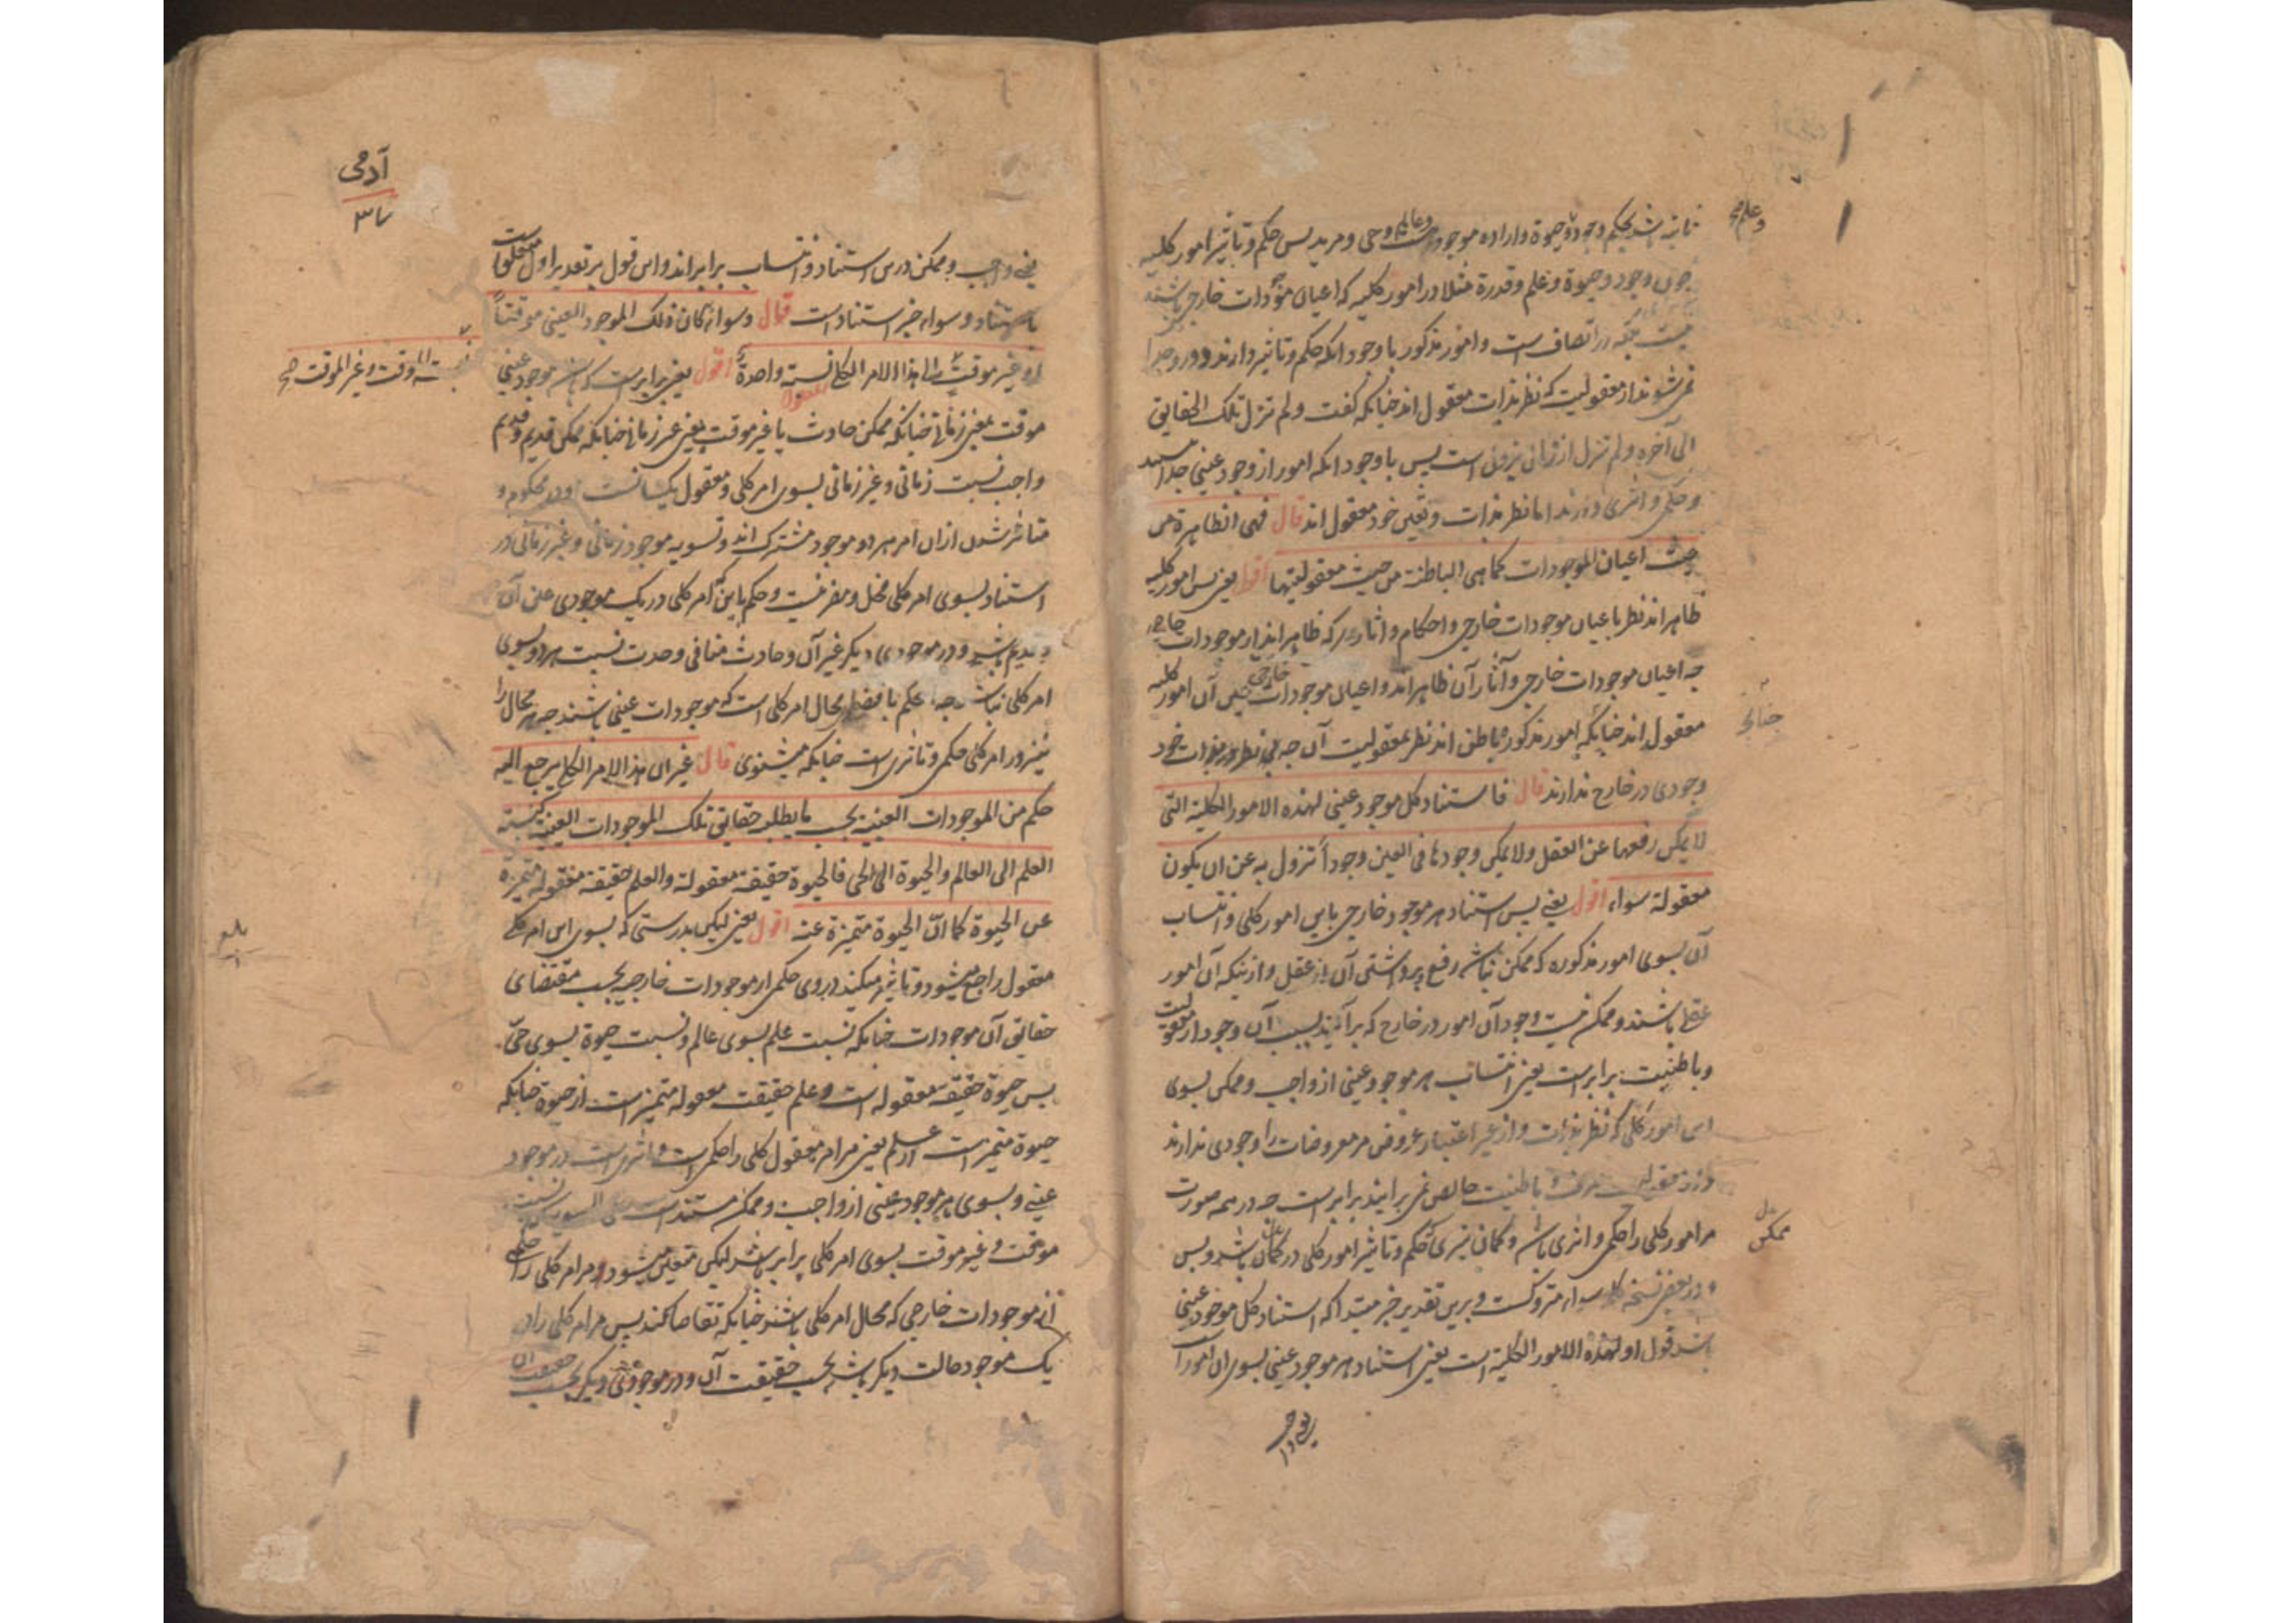 وعلم صح
شد بحکم وجود و حیوة و اراده موجود وعالم و حی و مرید پس حکم و تاثیر امور کلیه
چون وجود و حیوة و علم و قدرة مثلا در امور کلیه که اعیان موجودات خارجی باشند
اتصاف است و امور مذکور با وجود انکه حکم و تاثیر دارند در وجدا
نمی شوند از معقولیت که نظر بذات معقول اند چنانکه گفت ولم تزل تلک الحقایق
الی آخره ولم تزل از زال یزول است پس با وجود انکه امور از وجود عینی جدا
و حکمی و اثری دارند اما نظر بذات و تعین خود معقول اند قال فهی الظاهرة من
حیث اعیان الموجودات کما هی الباطنة من حیث معقولیتها اقول یعنی پس امور کلیه
ظاهر اند نظر باعیان موجودات خارجی و احکام و اثار که ظاهر اند از موجودات خارجی
چه اعیان موجودات خارجی و آثار آن ظاهر اند و اعیان موجودات خارجی عین آن امور کلیه
معقول اند چنانکه امور مذکور باطن اند نظر بمعقولیت آن چه بی نظر بذات خود
وجودی در خارج ندارند قال فاستناد کل موجود عینی لهذه الامور الکلیة التی
لا یمکن رفعها عن العقل ولا یمکن وجودها فی العین وجوداً تزول به عن ان یکون
معقولة سواء اقول یعنی پس استناد هر موجود خارجی باین امور کلی و انتساب
آن بسوی امور مذکوره که ممکن نباشد رفع و برداشتن آن از عقل و ازینکه آن امور
عقلی باشند و ممکن نیست وجود آن امور در خارج که برآیند بسبب آن وجود از معقولیت
و باطنیت برابر است یعنی انتساب هر موجود عینی از واجب و ممکن بسوی
این امور کلی که نظر بذات و از غیر اعتبار عروض مر معروضات را وجودی ندارند
باطنیت خالص نمی برایند برابر است چه در همه صورت
مر امور کلی را حکمی و اثری باشد و کمان نبری که حکم و تاثیر امور کلی در ممکن باشد و بس
ممکن
و در بعض نسخه کلمه سواء متروکست و برین تقدیر خبر مبتدا که استناد کل موجود عینی
باشد قول او لهذه الامور الکلیة است یعنی استناد هر موجود عینی بسوی ان امور است
آدمی
۳۷
یعنی واجب و ممکن درین استناد و انتساب برابر اند و این قول بر تقدیر اول متعلق است
باستناد و سواء خبر استناد است قال وسواء کان ذلک الموجود العینی موقتاً
او غیر موقت الی هذا الامر الکلی نسبة واحدة اقول یعنی برابر است که باشد موجود عینی
نسبة الموقت وغیر الموقت صح
موقت یعنی زمانی چنانکه ممکن حادث یا غیر موقت یعنی غیر زمانی چنانکه ممکن قدیم و قدیم
واجب نسبت زمانی و غیر زمانی بسوی امر کلی و معقول یکسانست و در محکوم و
متاثر شدن ازان امر هر دو موجود مشترک اند و تسویه موجود زمانی و غیر زمانی در
استناد بسوی امر کلی مخل و مضر نیست و حکم باینکه امر کلی در یک موجودی عین آن
و قدیم باشد و در موجودی دیگر غیر آن و حادث منافی وحدت نسبت هر دو بسوی
امر کلی نباشد چه حکم باقتضای محال امر کلی است که موجودات عینی باشند چه هر محال را
نیز در امر کلی حکمی و تاثیری است چنانکه میشنوی قال غیر ان هذا الامر الکلی یرجع الیه
حکم من الموجودات العینیة بحسب ما یطلبه حقائق تلک الموجودات العینیة کنسبة
العلم الی العالم والحیوة الی الحی فالحیوة حقیقة معقولة والعلم حقیقة معقولة متمیزة
عن الحیوة کما انّ الحیوة متمیزة عنه اقول یعنی لیکن بدرستی که بسوی این امر کلی
معقول راجع میشود و تاثیر میکند در وی حکمی از موجودات خارجیه بحسب مقتضای
حقائق آن موجودات چنانکه نسبت علم بسوی عالم و نسبت حیوة بسوی حیّ
پس حیوة حقیقة معقوله است و علم حقیقت معقوله متمیز است از حیوة چنانکه
حیوة متمیز است از علم یعنی مر امر معقول کلی را حکمی است و اثری است در موجود
عینی و بسوی هر موجود عینی از واجب و ممکن مستند است
موقت و غیر موقت بسوی امر کلی برابر باشد لیکن متعین میشود مر امر کلی را حکمی
از موجودات خارجی که محال امر کلی باشند چنانکه تقاضا کنند پس مر امر کلی را در
یک موجود حالت دیگر باشد بحسب حقیقت آن و در موجودی دیگر بحسب حقیقت آن